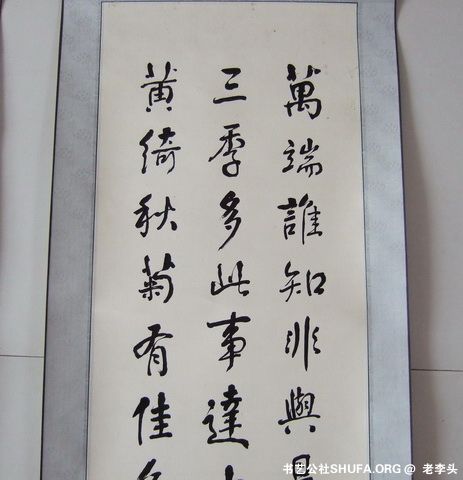 萬端誰知非與
三季多此事達
黄綺秋菊有佳
书艺公社SHUFA.ORG @ 老李头